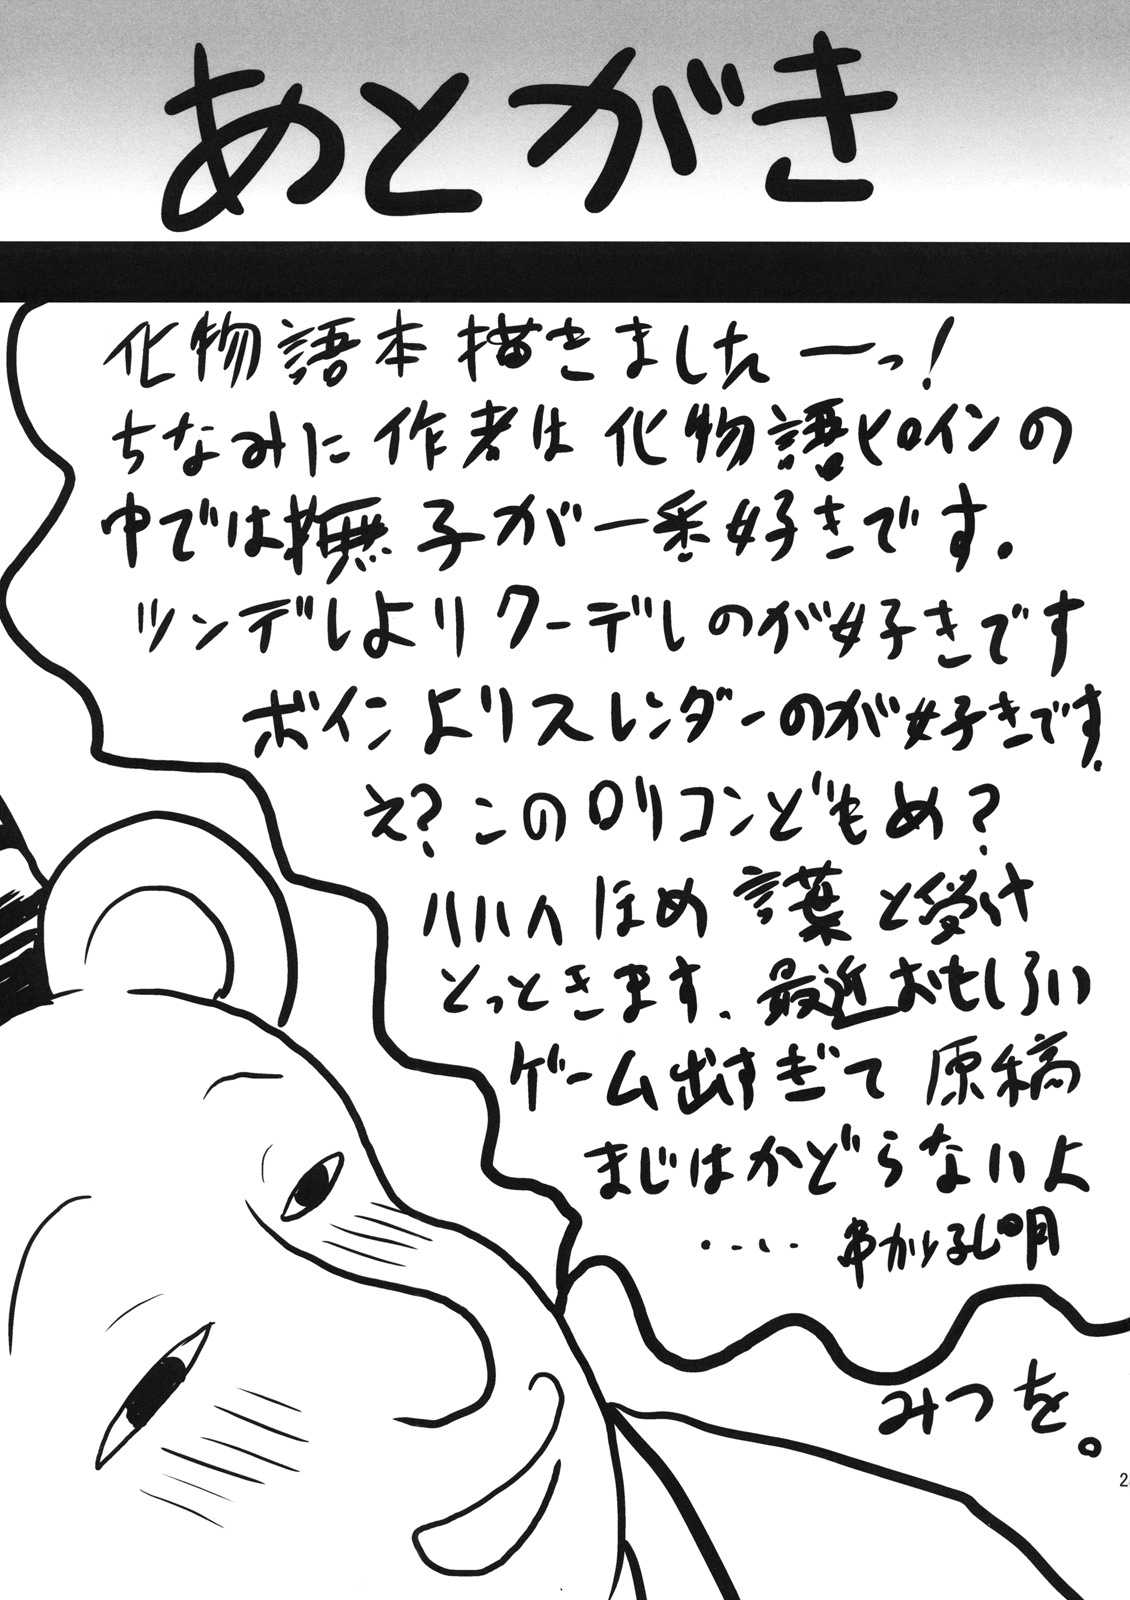 あとがき
化物語本描きましたーっ!
ちなみに作者は化物語ヒロインの
中では撫子が一番好きです。
ツンデレよりクーデレのが好きです
ボインよりスレンダーのが好きです。
え?このロリコンどもめ?
ハハハほめ言葉と受け
とっときます。最近おもしろい
ゲーム出すぎて原稿
まじはかどらないよ
.... 串かり孔明
みつを。